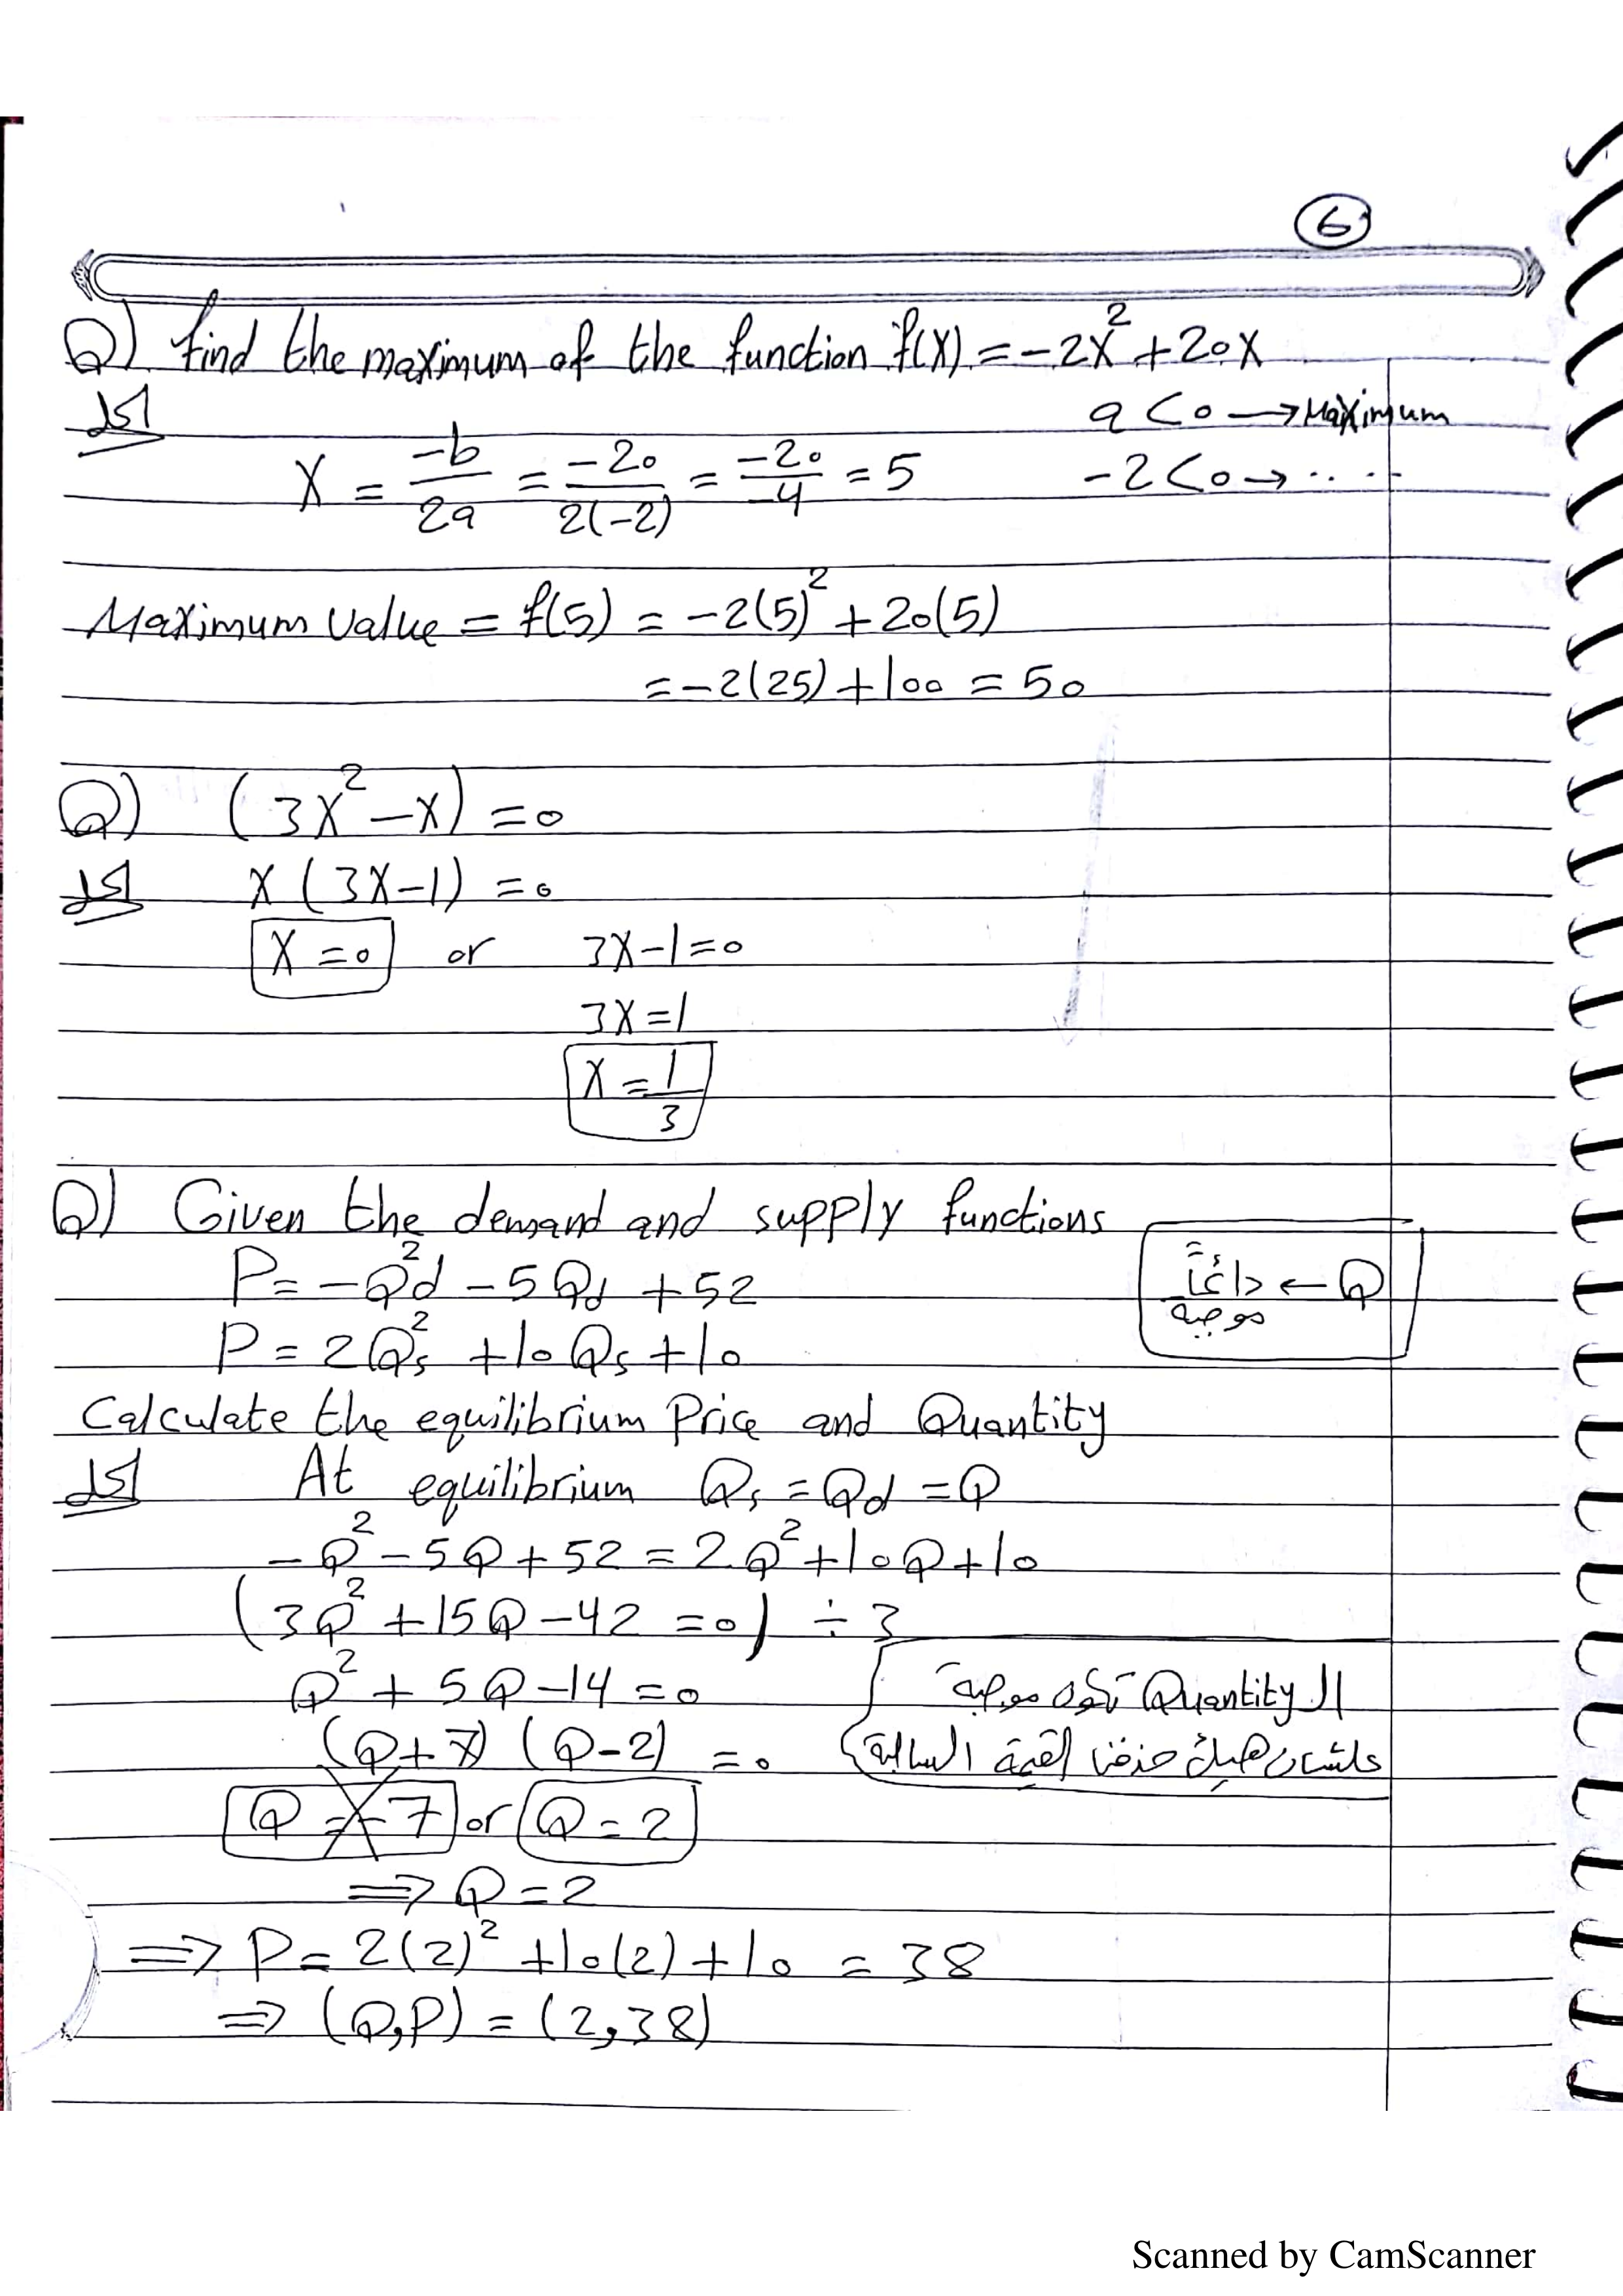 6
Q) find the maximum of the function f(x) = -2x² + 20x
الحل
a < 0 → Maximum
x = -b/2a = -20/2(-2) = -20/-4 = 5
-2 < 0 → ....
Maximum Value = f(5) = -2(5)² + 20(5)
= -2(25) + 100 = 50
Q) (3x² - x) = 0
الحل x (3x - 1) = 0
x = 0 or 3x - 1 = 0
3x = 1
x = 1/3
Q) Given the demand and supply functions
P = -Q²d - 5Qd + 52
P = 2Qs² + 10Qs + 10
Q ← دائماً
موجبه
Calculate the equilibrium Price and Quantity
الحل At equilibrium Qs = Qd = Q
-Q² - 5Q + 52 = 2Q² + 10Q + 10
(3Q² + 15Q - 42 = 0) ÷ 3
Q² + 5Q - 14 = 0
(Q + 7) (Q - 2) = 0
ال Quantity تكون موجبة
علشان هيك حذفنا القيمة السالبة
Q = -7 or Q = 2
⟹ Q = 2
⟹ P = 2(2)² + 10(2) + 10 = 38
⟹ (Q,P) = (2,38)
Scanned by CamScanner